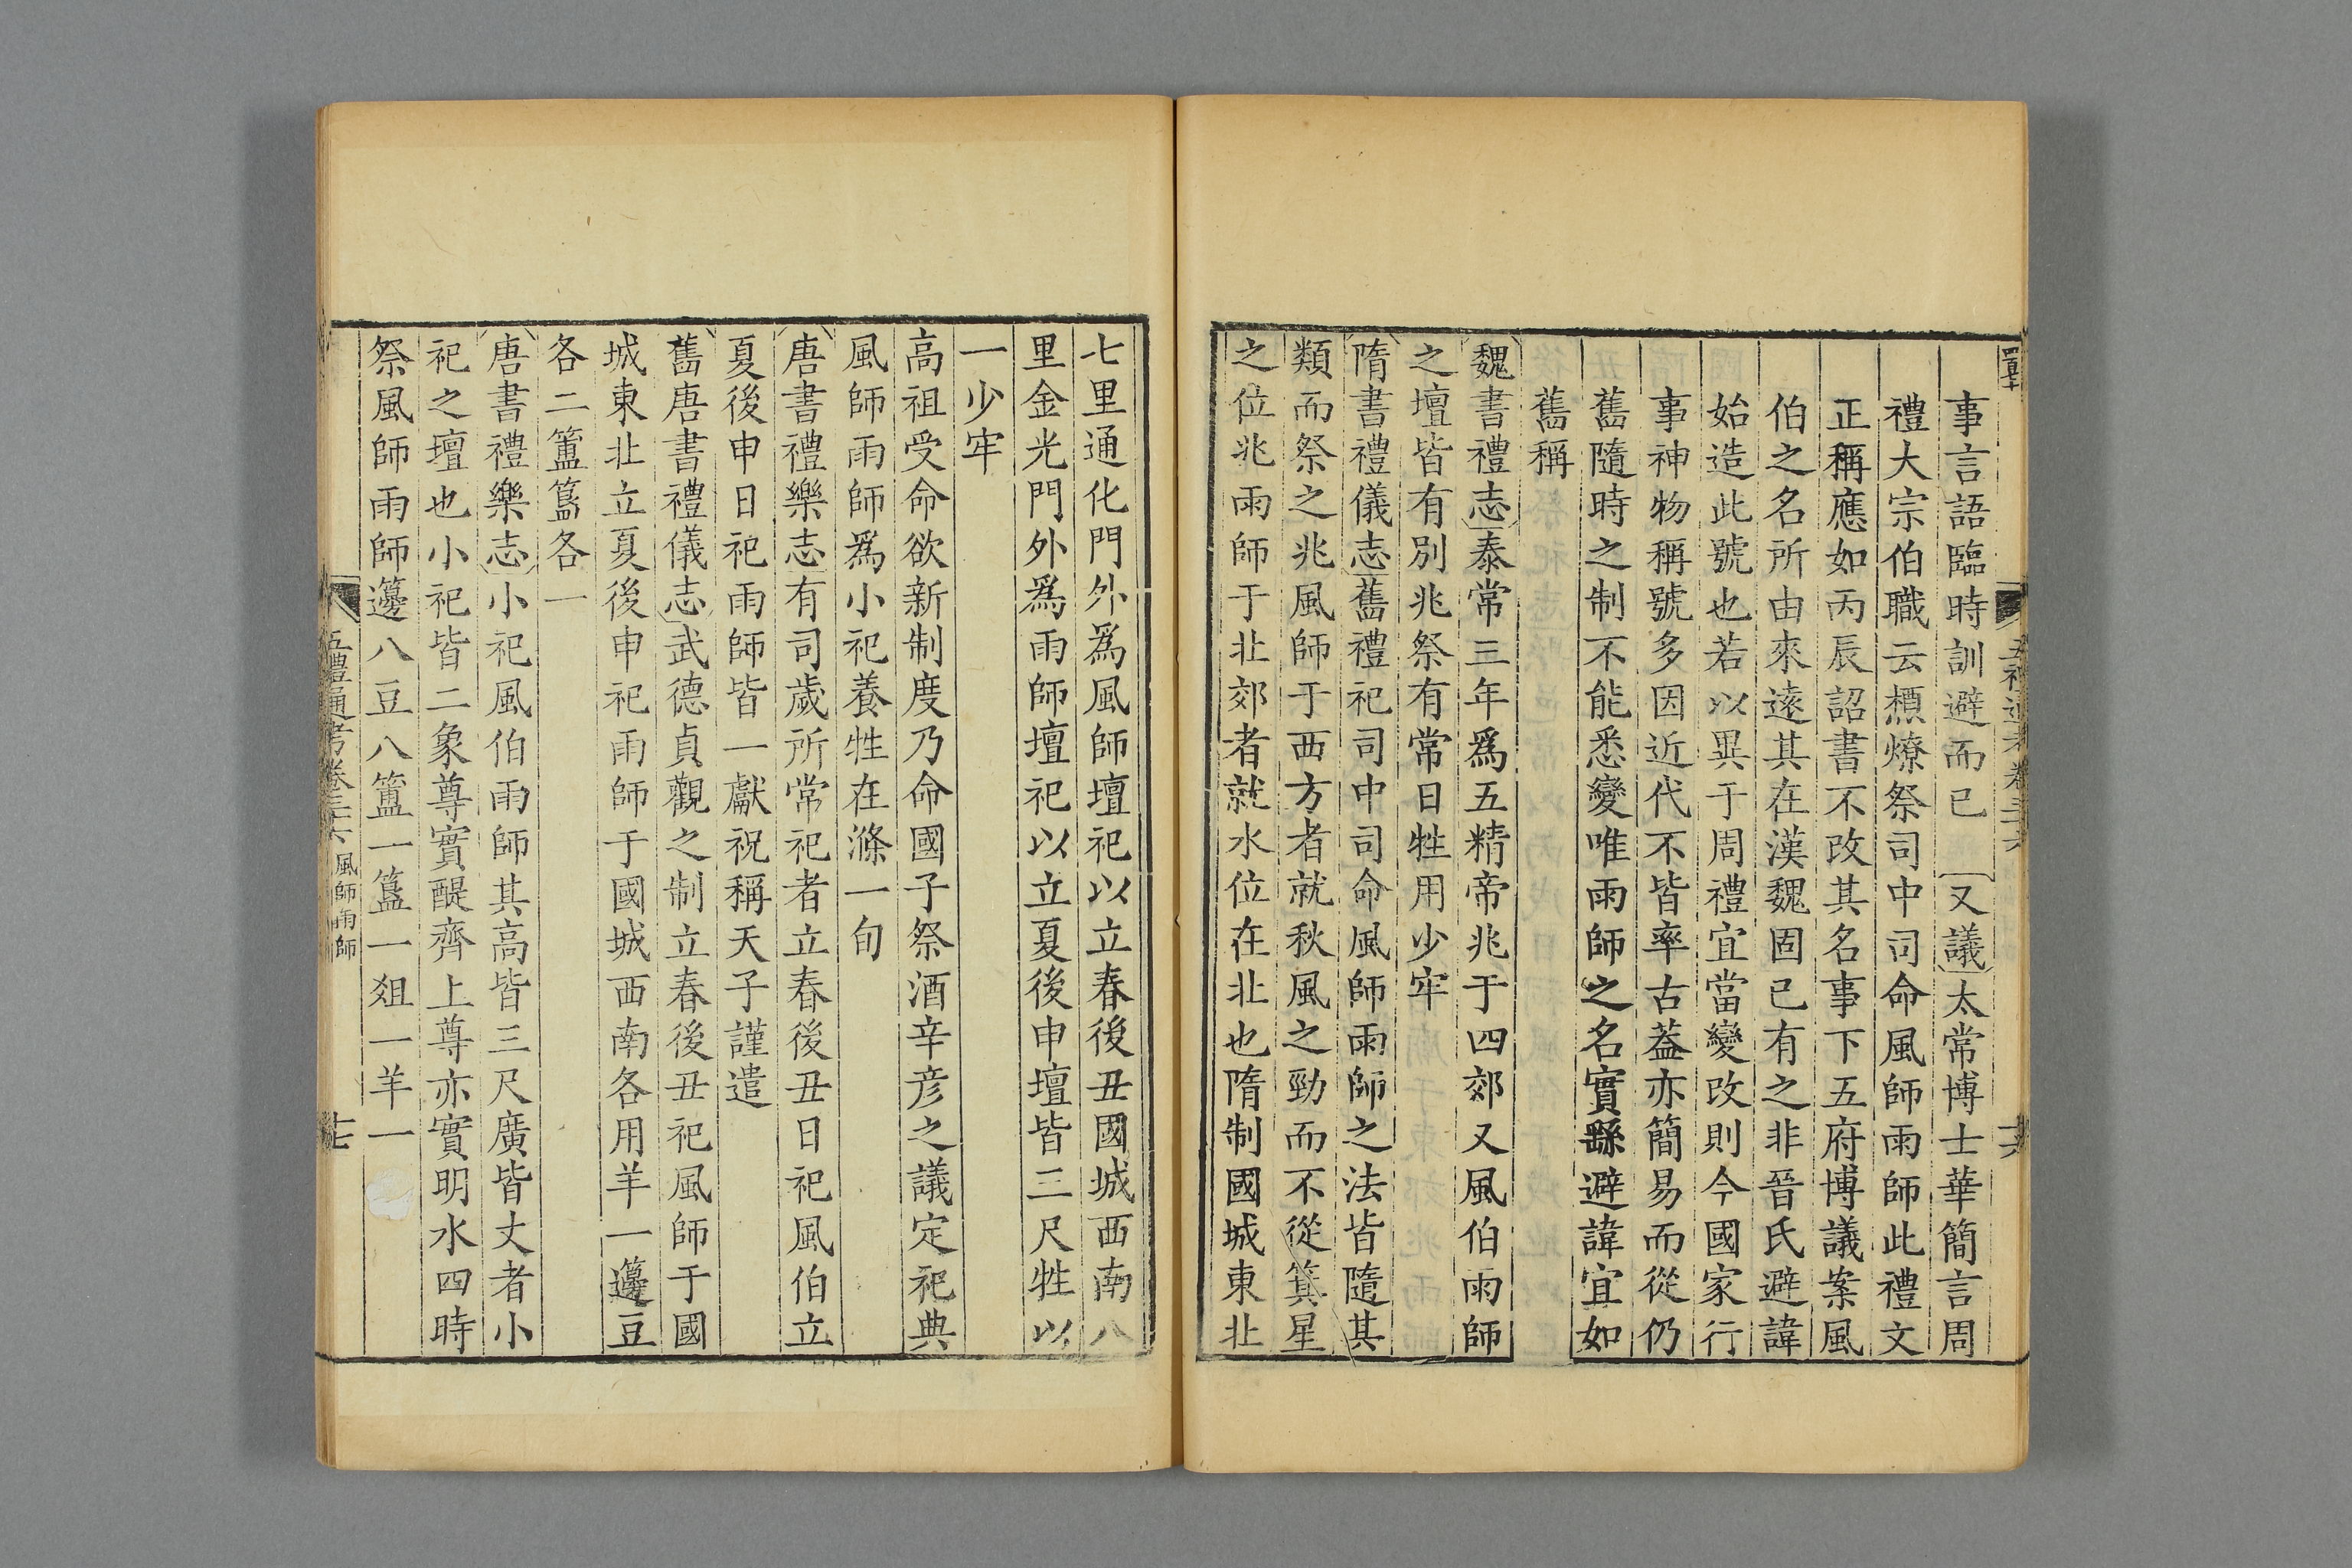 事言語臨時訓避而已又議太常博士華簡言周
禮大宗伯職云槱燎祭司中司命風師雨師此禮文
正稱應如丙辰詔書不改其名事下五府博議案風
伯之名所由來遠其在漢魏固已有之非晉氏避諱
始造此號也若以異于周禮宜當變改則今國家行
事神物稱號多因近代不皆率古葢亦簡易而從仍
舊隨時之制不能悉變唯雨師之名實繇避諱宜如
舊稱
魏書禮志泰常三年爲五精帝兆于四郊又風伯雨師
之壇皆有別兆祭有常日牲用少牢
隋書禮儀志舊禮祀司中司命風師雨師之法皆隨其
類而祭之兆風師于西方者就秋風之勁而不從箕星
之位兆雨師于北郊者就水位在北也隋制國城東北
七里通化門外爲風師壇祀以立春後丑國城西南八
里金光門外爲雨師壇祀以立夏後申壇皆三尺牲以
一少牢
高祖受命欲新制度乃命國子祭酒辛彦之議定祀典
風師雨師爲小祀養牲在滌一旬
唐書禮樂志有司歲所常祀者立春後丑日祀風伯立
夏後申日祀雨師皆一獻祝稱天子謹遣
舊唐書禮儀志武德貞觀之制立春後丑祀風師于國
城東北立夏後申祀雨師于國城西南各用羊一籩豆
各二簠簋各一
唐書禮樂志小祀風伯雨師其高皆三尺廣皆丈者小
祀之壇也小祀皆二象尊實醍齊上尊亦實明水四時
祭風師雨師籩八豆八簠一簋一俎一羊一
五禮通考卷三十六 風師雨師 十七